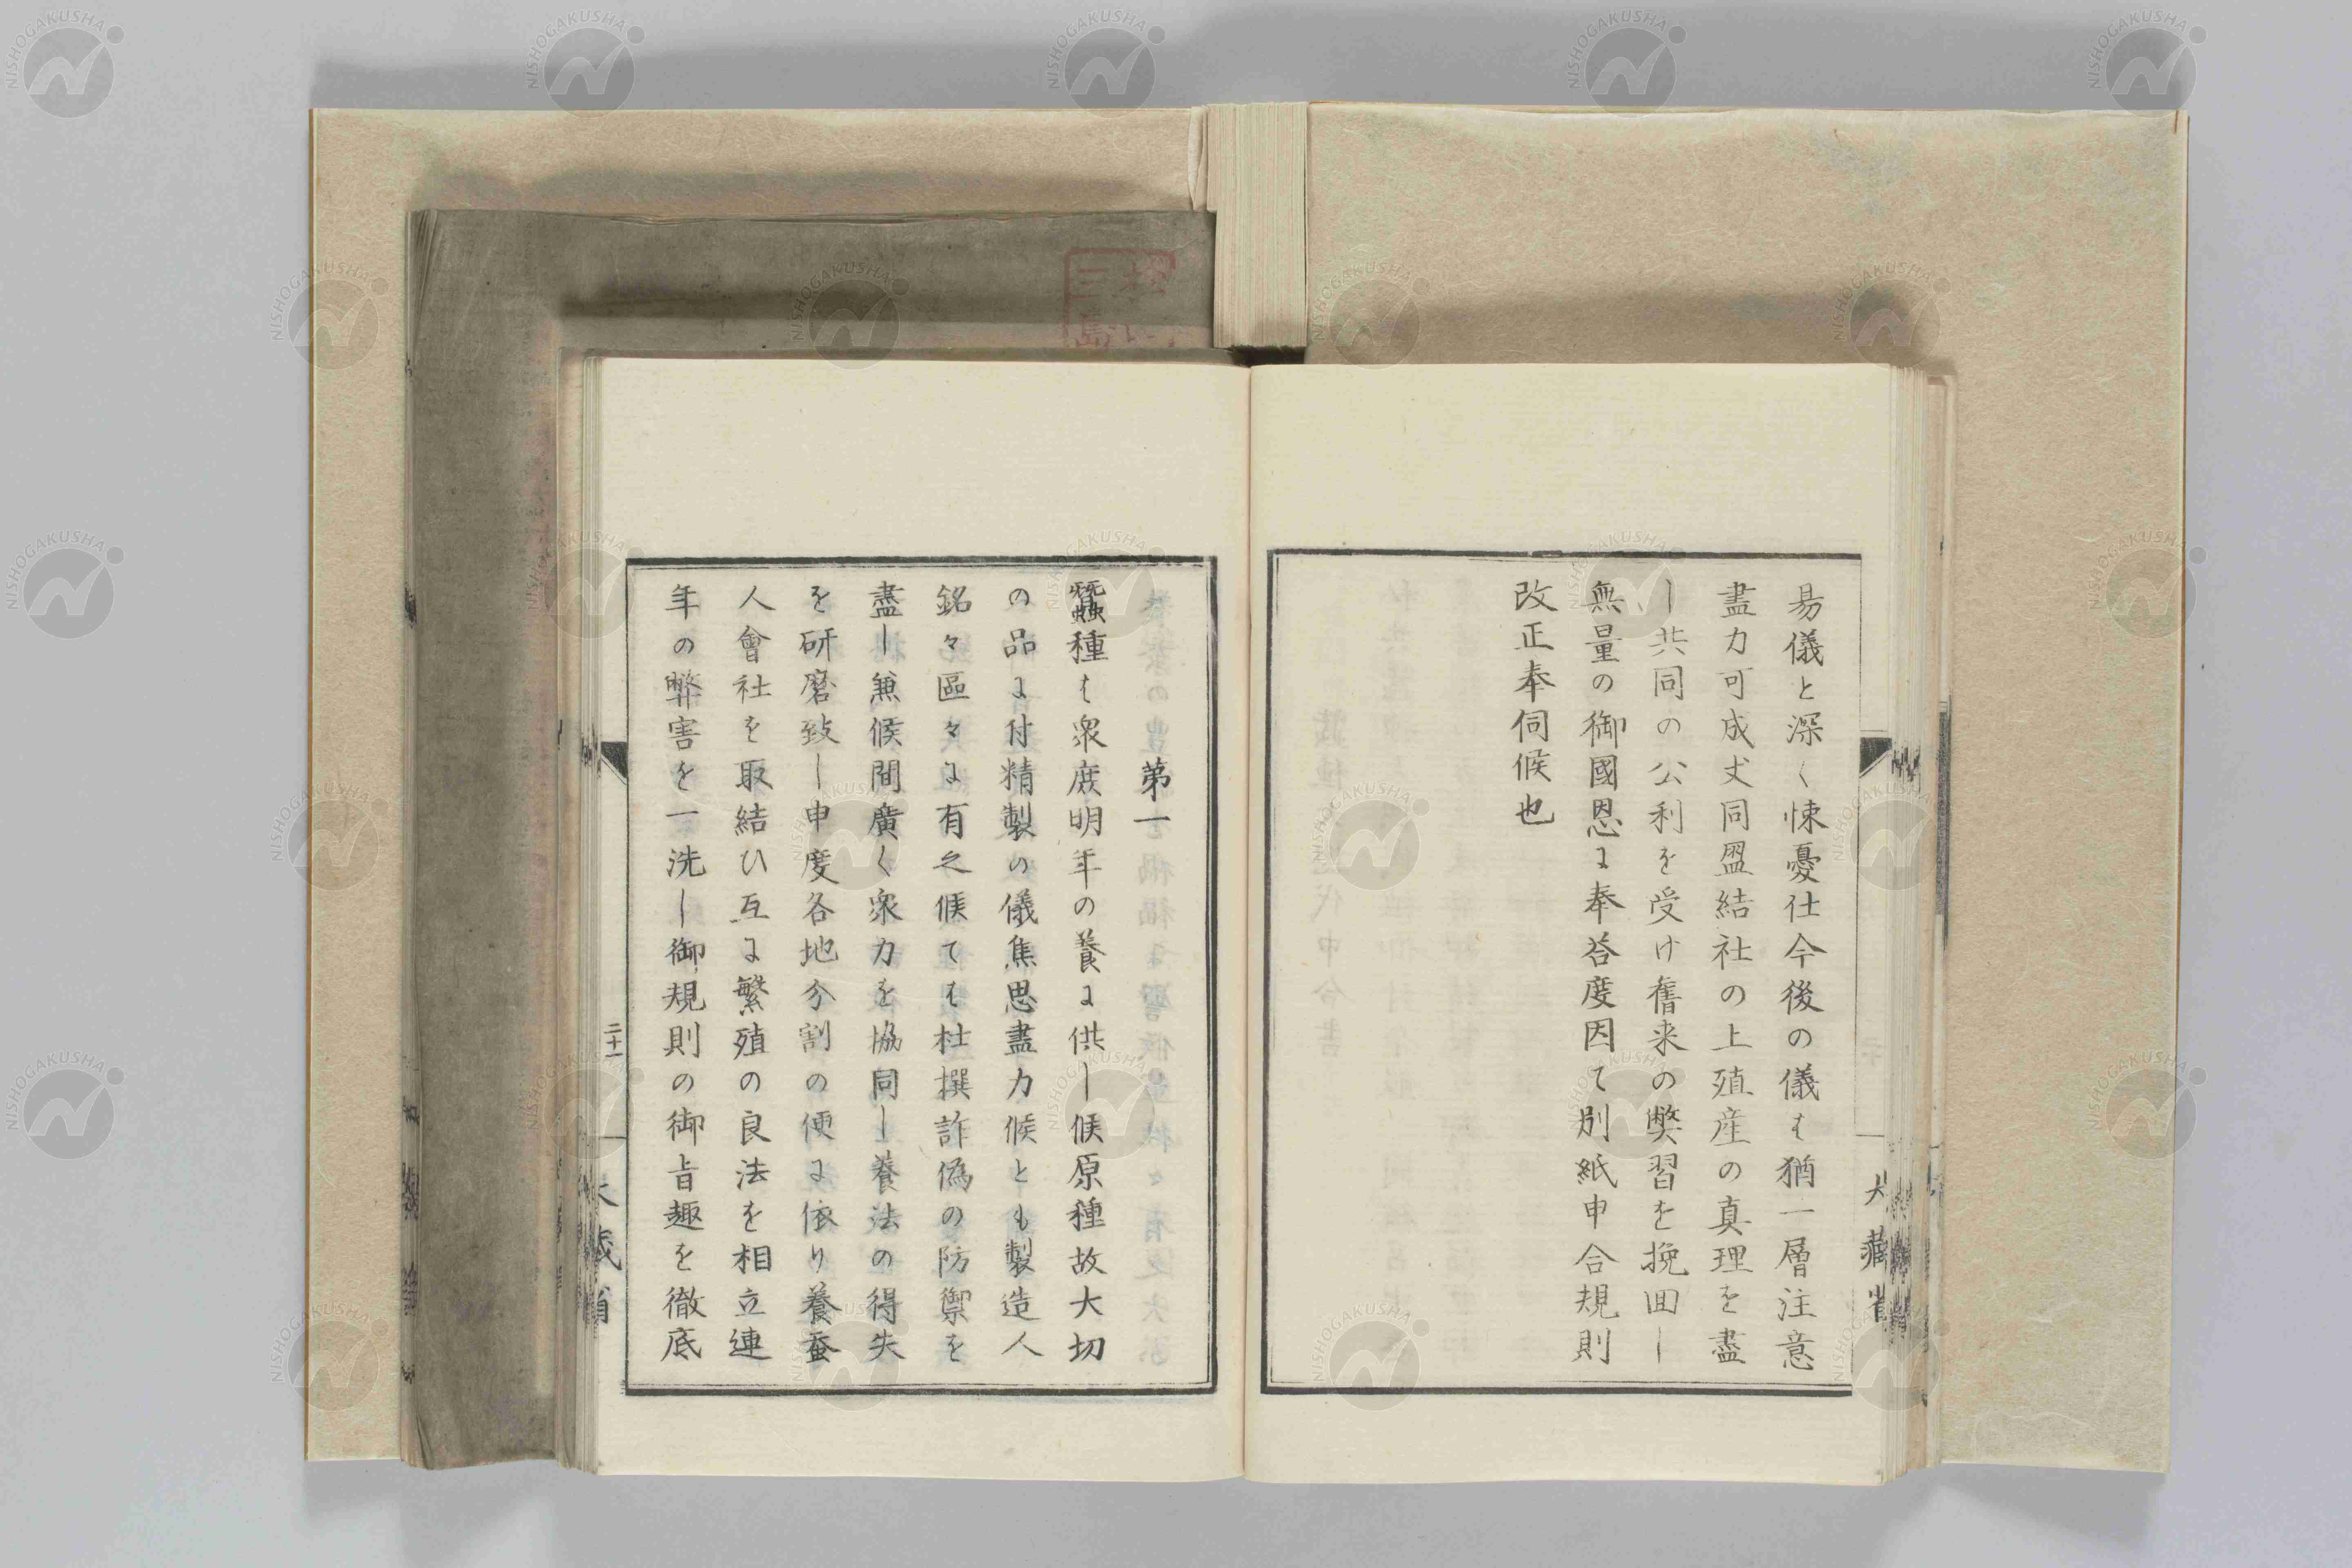 易儀と深く悚憂仕今後の儀は猶一層注意
盡力可成丈同盟結社の上殖産の真理を盡
し共同の公利を受け舊来の弊習を挽回し
無量の御國恩に奉答度因て別紙申合規則
改正奉伺候也
大藏省
第一
蠶種は衆庶明年の養に供し候原種故大切
の品に付精製の儀焦思盡力候とも製造人
銘々區々に有之候ては杜撰詐偽の防禦を
盡し兼候間廣く衆力を協同し養法の得失
を研磨致し申度各地分割の便に依り養蚕
人會社を取結ひ互に繁殖の良法を相立連
年の弊害を一洗し御規則の御旨趣を徹底
二十一
大藏省
三島
NISHOGAKUSHA